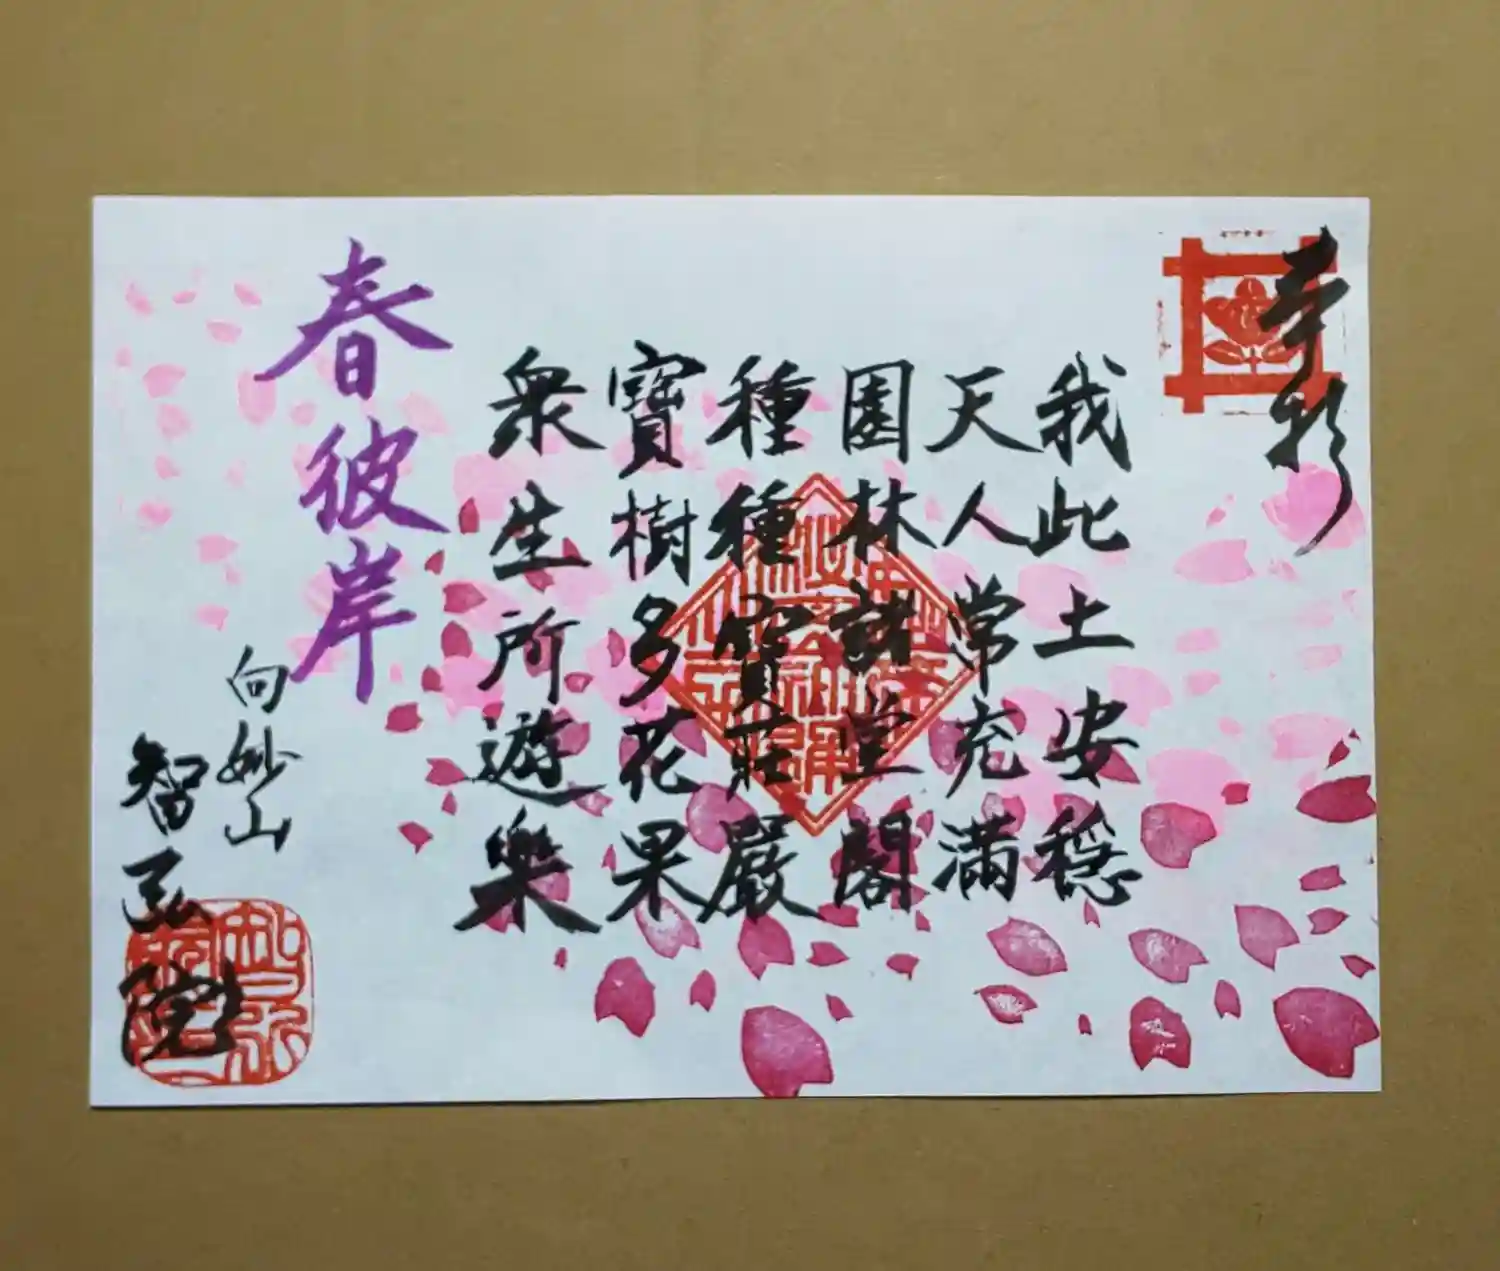 奉拝
我此土安穏
天人常充満
園林諸堂閣
種種寶荘嚴
寶樹多花果
衆生所遊樂
春彼岸
向妙山
智弘院